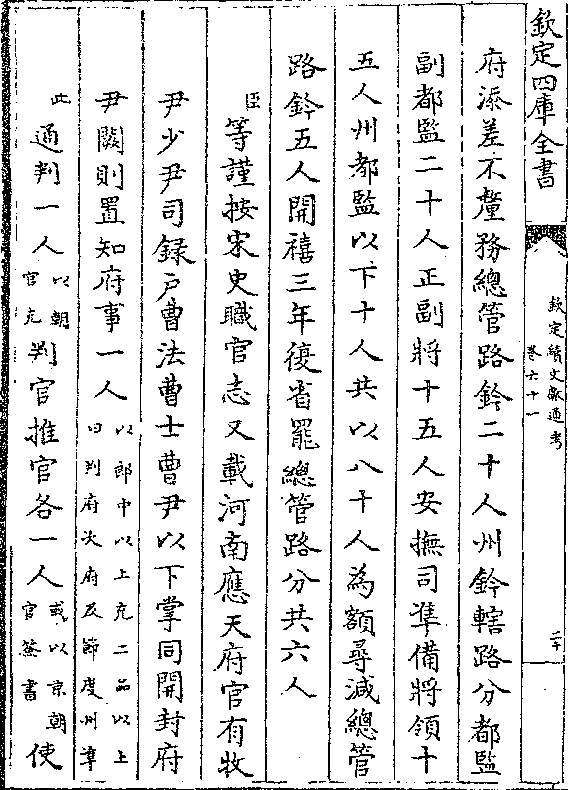 欽定四庫全書
欽定續文獻通考
卷六十一
二十
府添差不釐務總管路鈐二十人州鈐轄路分都監
副都監二十人正副將十五人安撫司凖備將領十
五人州都監以下十人共以八十人為額尋減總管
路鈐五人開禧三年復省罷總管路分共六人
臣等謹按宋史職官志又載河南應天府官有牧
尹少尹司錄戶曹法曹士曹尹以下掌同開封府
尹闕則置知府事一人以郎中以上充二品以上曰判府次府及節度州凖
此通判一人以朝官充判官推官各一人或以京朝官簽書使